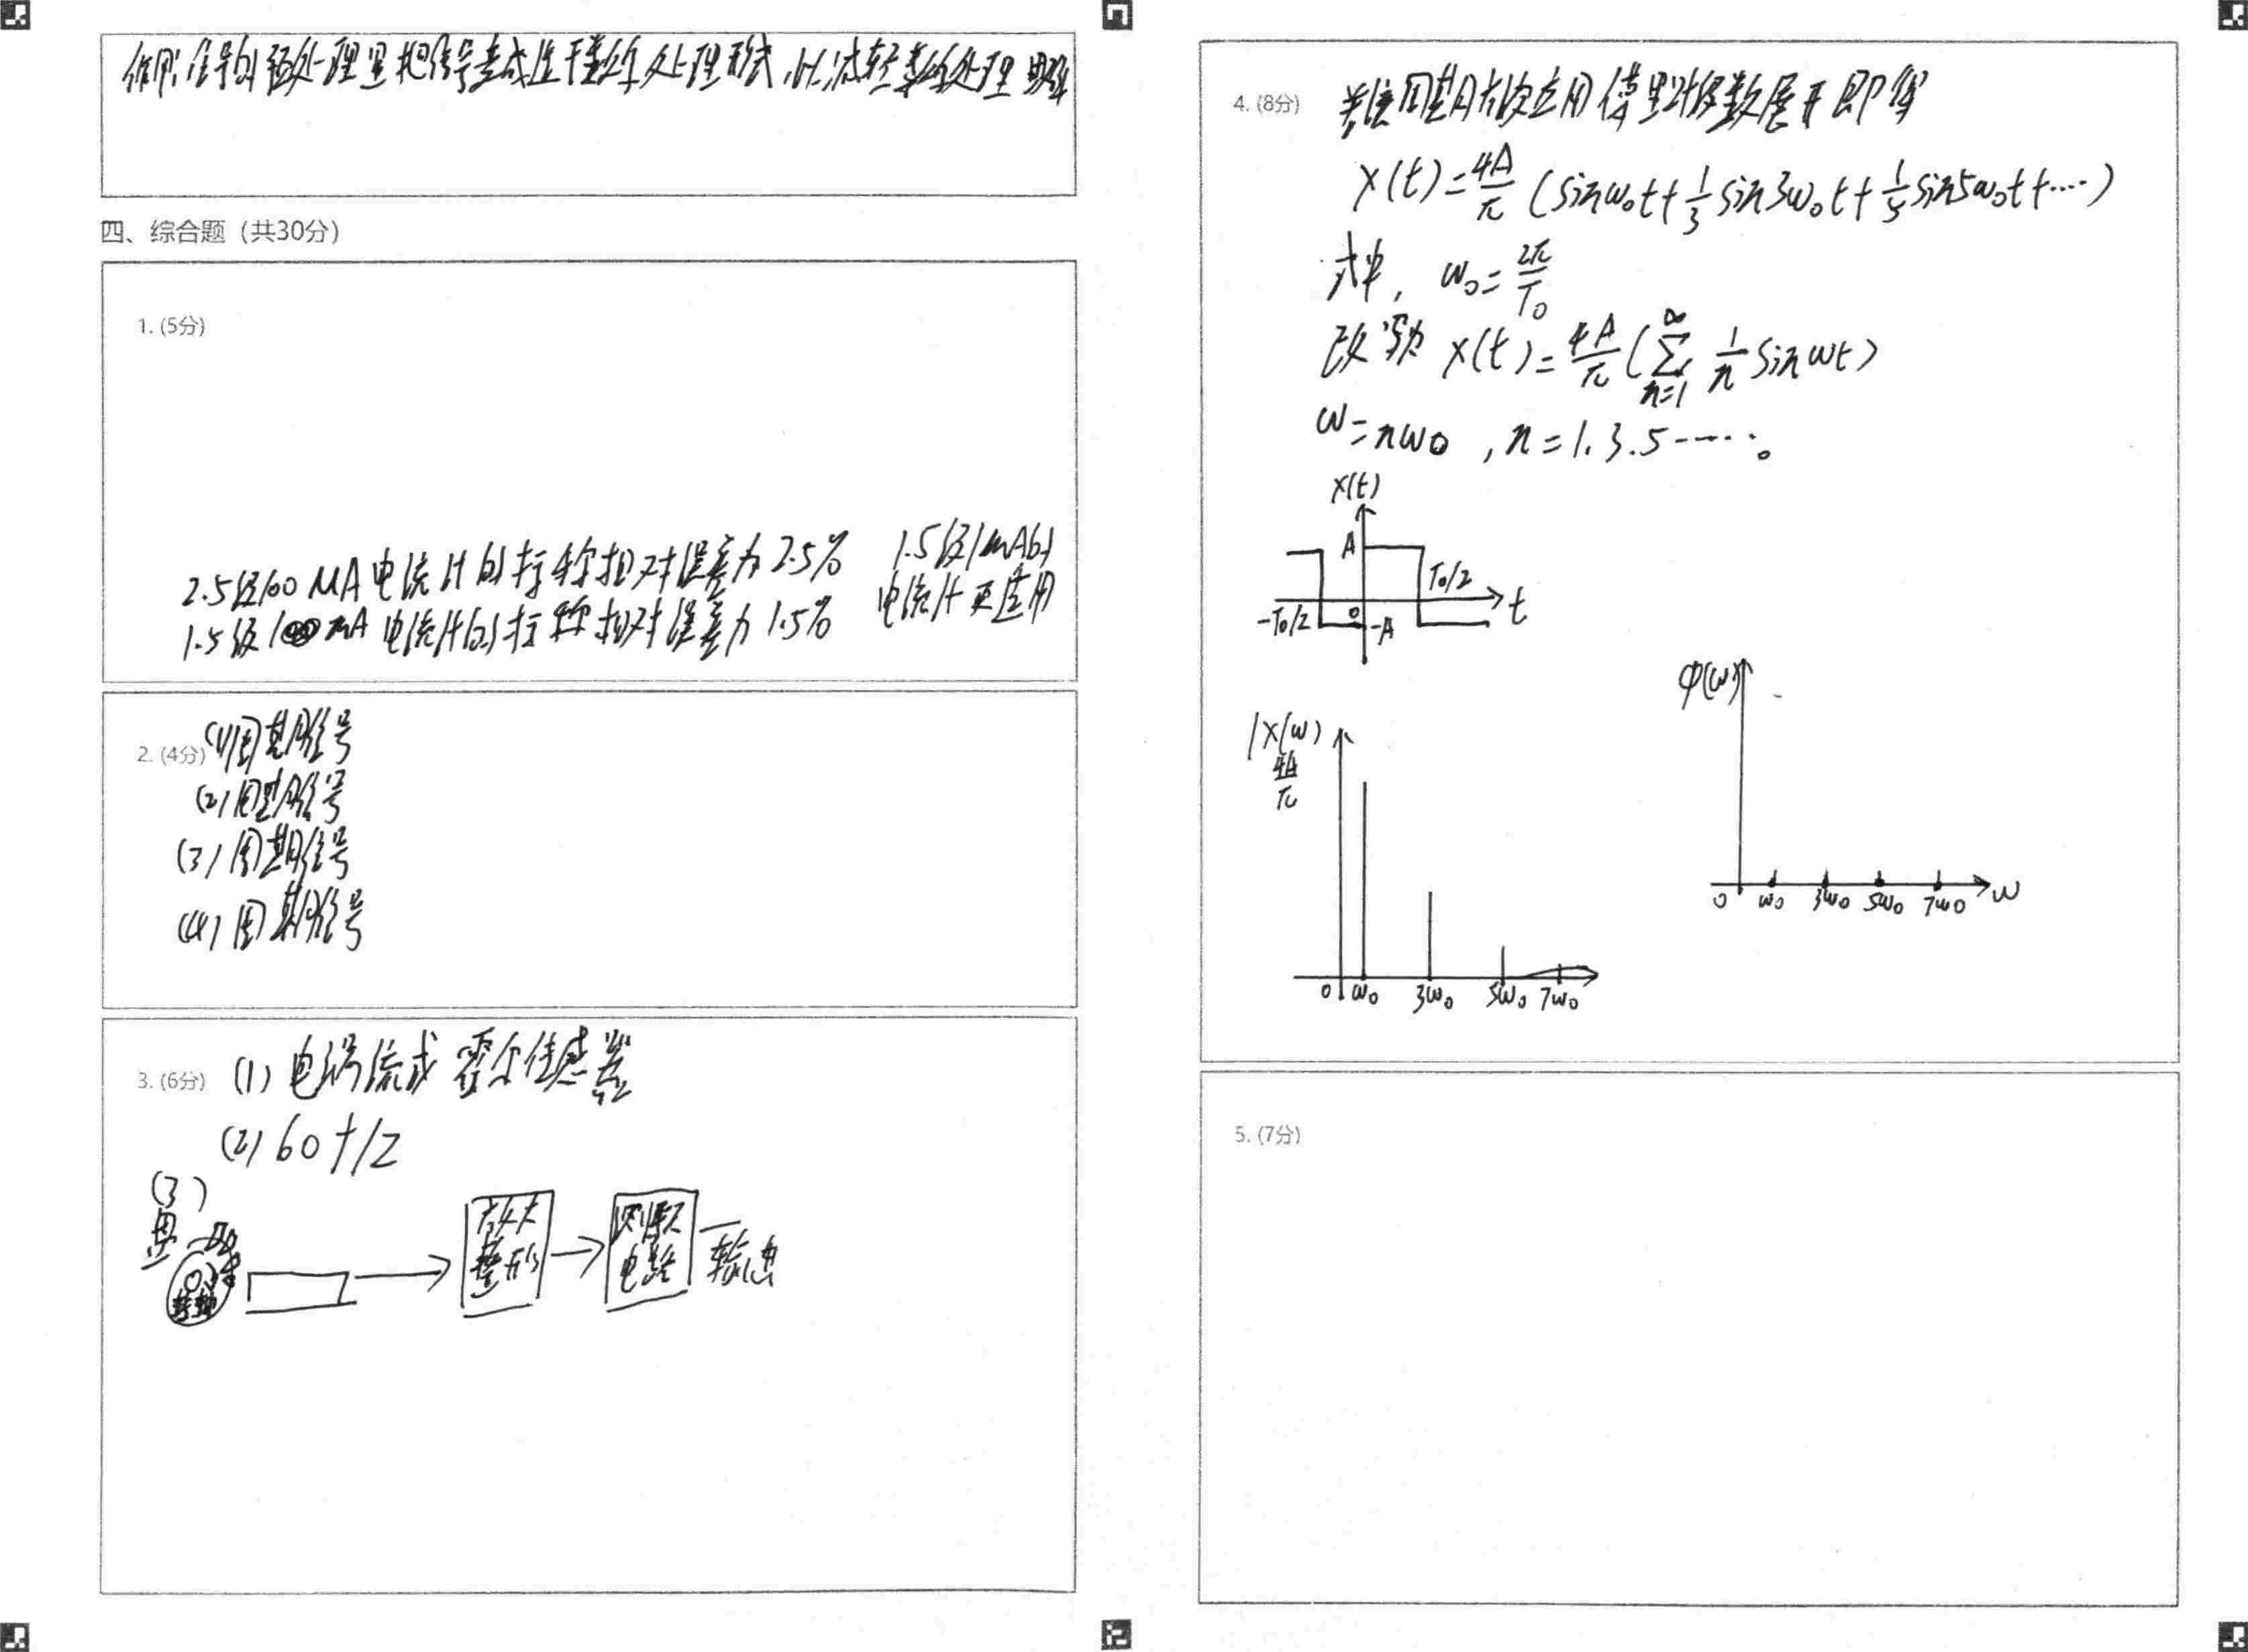 作用:信号的预处理是把信号变成适于数字处理形式,以减轻数字处理困难
四、综合题(共30分)
1. (5分)
2.5级100 MA电流计的标称相对误差为2.5%
1.5级1 mA电流计的标称相对误差为1.5%
1.5级1mA的
电流计更适用
2. (4分) (1)周期信号
(2)周期信号
(3)周期信号
(4)周期信号
3. (6分) (1)电涡流或霍尔传感器
(2) 60f/z
(3)
转轴
放大
整形
测频
电路
输出
4. (8分)
周期方波应用傅里叶级数展开即得
x(t)=4A/π (sinω₀t+1/3 sin3ω₀t+1/5 sin5ω₀t+····)
式中, ω₀=2π/T₀
改写为 x(t)=4A/π(∑ₙ₌₁^∞ 1/n sinωt)
ω=nω₀ ,n=1.3.5-----。
x(t)
A
T₀/2
-T₀/2
0
-A
t
|X(ω)
4A/π
0 ω₀ 3ω₀ 5ω₀ 7ω₀
φ(ω)
0 ω₀ 3ω₀ 5ω₀ 7ω₀ ω
5. (7分)